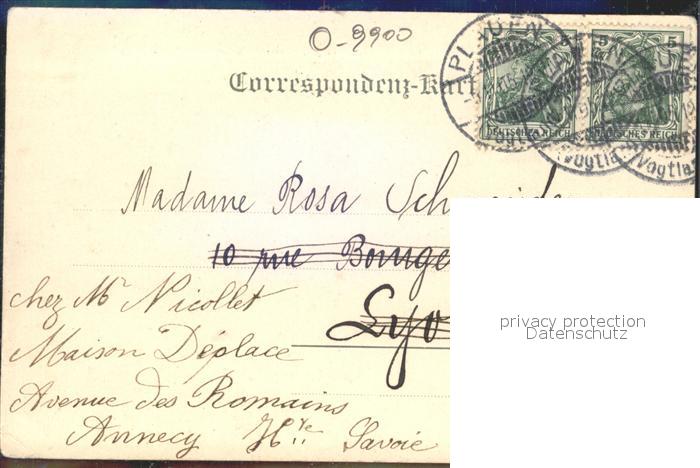 O-9900
Correspondenz-Kart
PLAUEN
5 5 5
DEUTSCHES REICH DEUTSCHES REICH
(Vogtl (Vogtla
Madame Rosa
10 rue Bourge
Lyo
chez Mr Nicollet
Maison Déplace
Avenue des Romains
Annecy Hte Savoie
privacy protection
Datenschutz